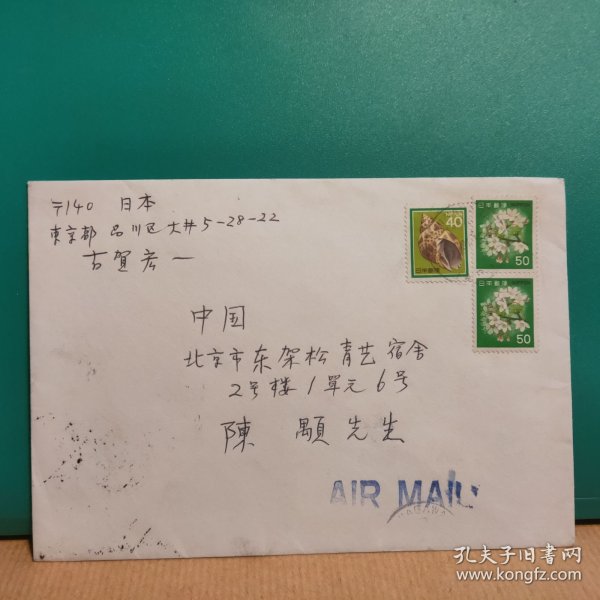 〒140 日本
東京都 品川区 大井5-28-22
古賀宏一
40
日本郵便
日本郵便
50
日本郵便
50
中国
北京市东架松青艺宿舍
2号楼1單元6号
陳 顒先生
AIR MAIL
孔夫子旧书网
www.kongfz.com